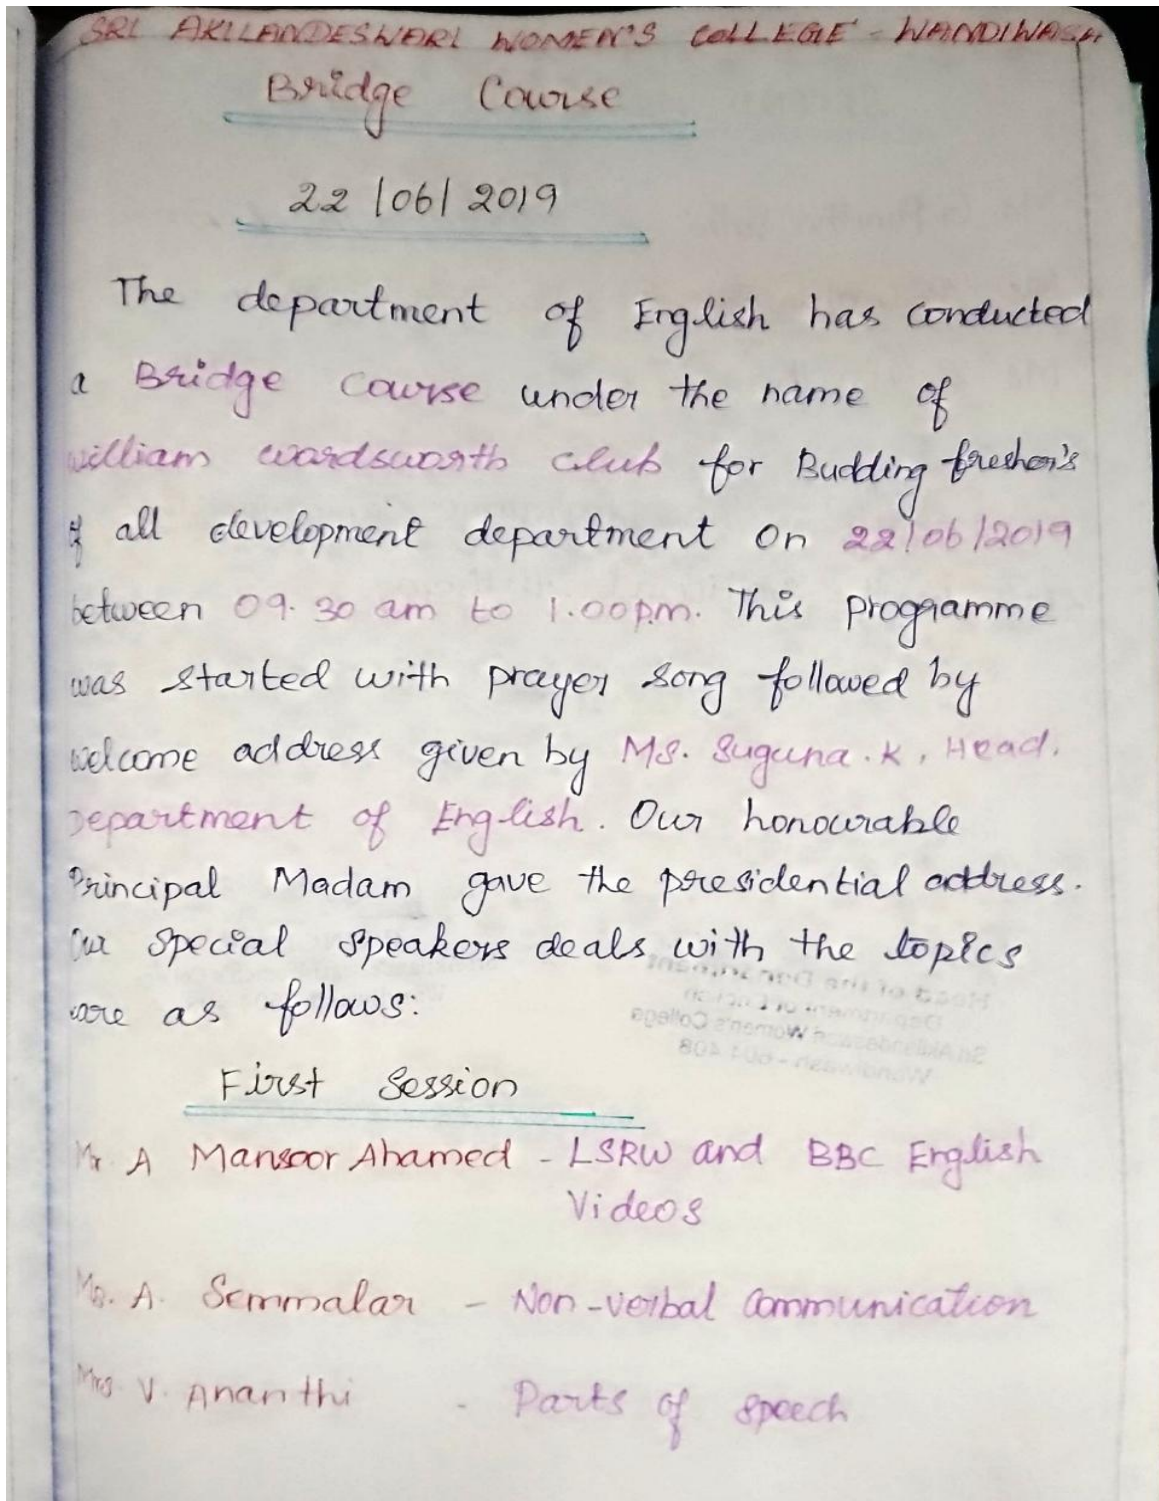 SRI AKILANDESWARI WOMEN'S COLLEGE - WANDIWASH
Bridge Course
22/06/2019
The department of English has conducted
a Bridge Course under the name of
william wordsworth club for Budding fresher's
of all development department on 22/06/2019
between 09.30 am to 1.00p.m. This programme
was started with prayer song followed by
welcome address given by Ms. Suguna.K, Head,
Department of English. Our honourable
Principal Madam gave the presidential address.
Our special speakers deals with the topics
are as follows:
Head of the Department
Department of English
Sri Akilandeswari Women's College
Wandiwash - 604 408
First Session
Mr. A Mansoor Ahamed - LSRW and BBC English
Videos
Ms. A. Semmalar - Non-verbal Communication
Mrs. V. Ananthi - Parts of speech